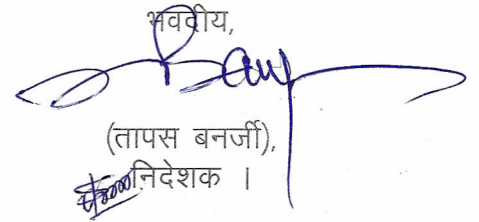 भवदीय,
(तापस बनर्जी),
निदेशक ।